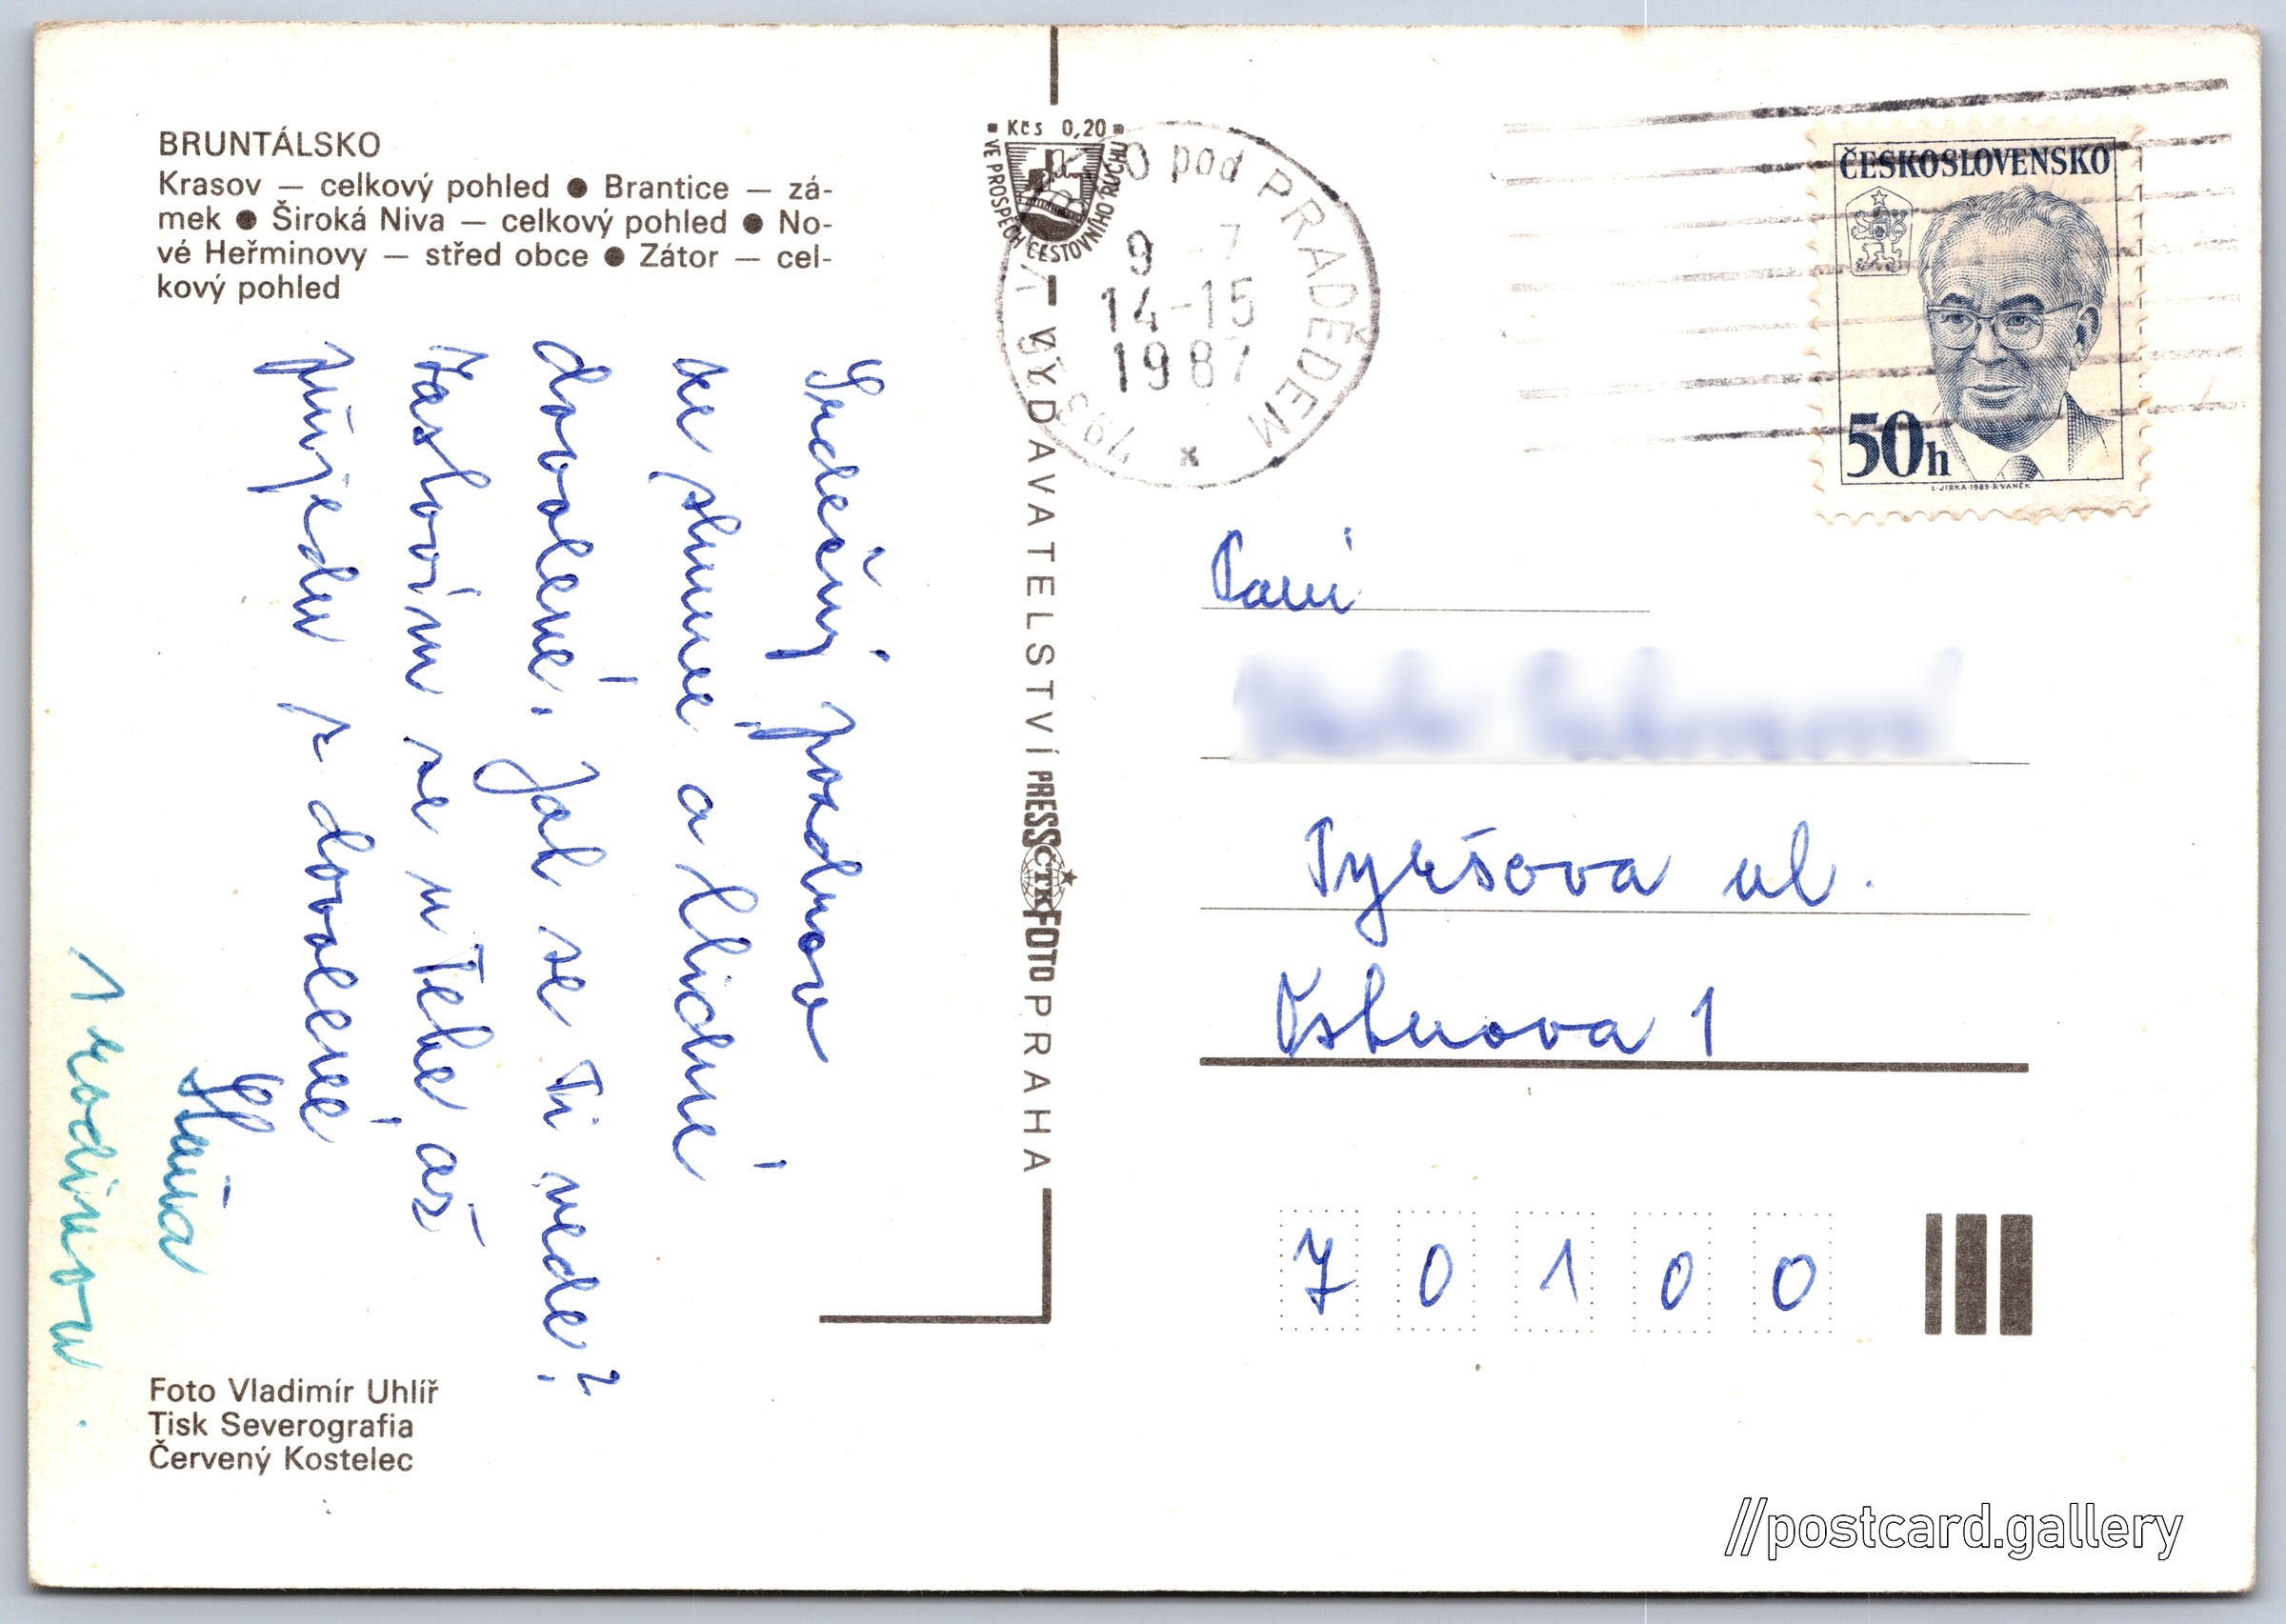 BRUNTÁLSKO
Krasov — celkový pohled ● Brantice — zá-
mek ● Široká Niva — celkový pohled ● No-
vé Heřminovy — střed obce ● Zátor — cel-
kový pohled
Srdečný pozdrav
ze slunné a klidné
dovolené. Jak se Ti vede?
Zastavím se u Tebe až
přijedu z dovolené
Hana
1 rodinou.
Foto Vladimír Uhlíř
Tisk Severografia
Červený Kostelec
Kčs 0,20
VE PROSPĚCH CESTOVNÍHO RUCHU
VYDAVATELSTVÍ PRESSFOTO PRAHA
ČTK
pod PRADĚDEM
9 -7
14-15
1987
793
ČESKOSLOVENSKO
50h
I. JIRKA · 1983 · R. VANĚK
Paní
Tyršova ul.
Ostrava 1
7 0 1 0 0
//postcard.gallery